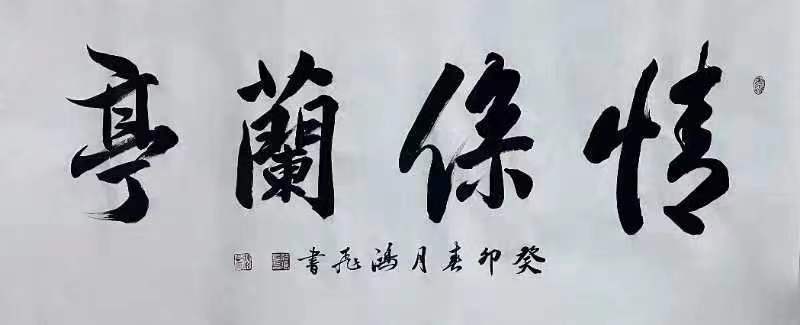 情係蘭亭
癸卯春月鴻飛書